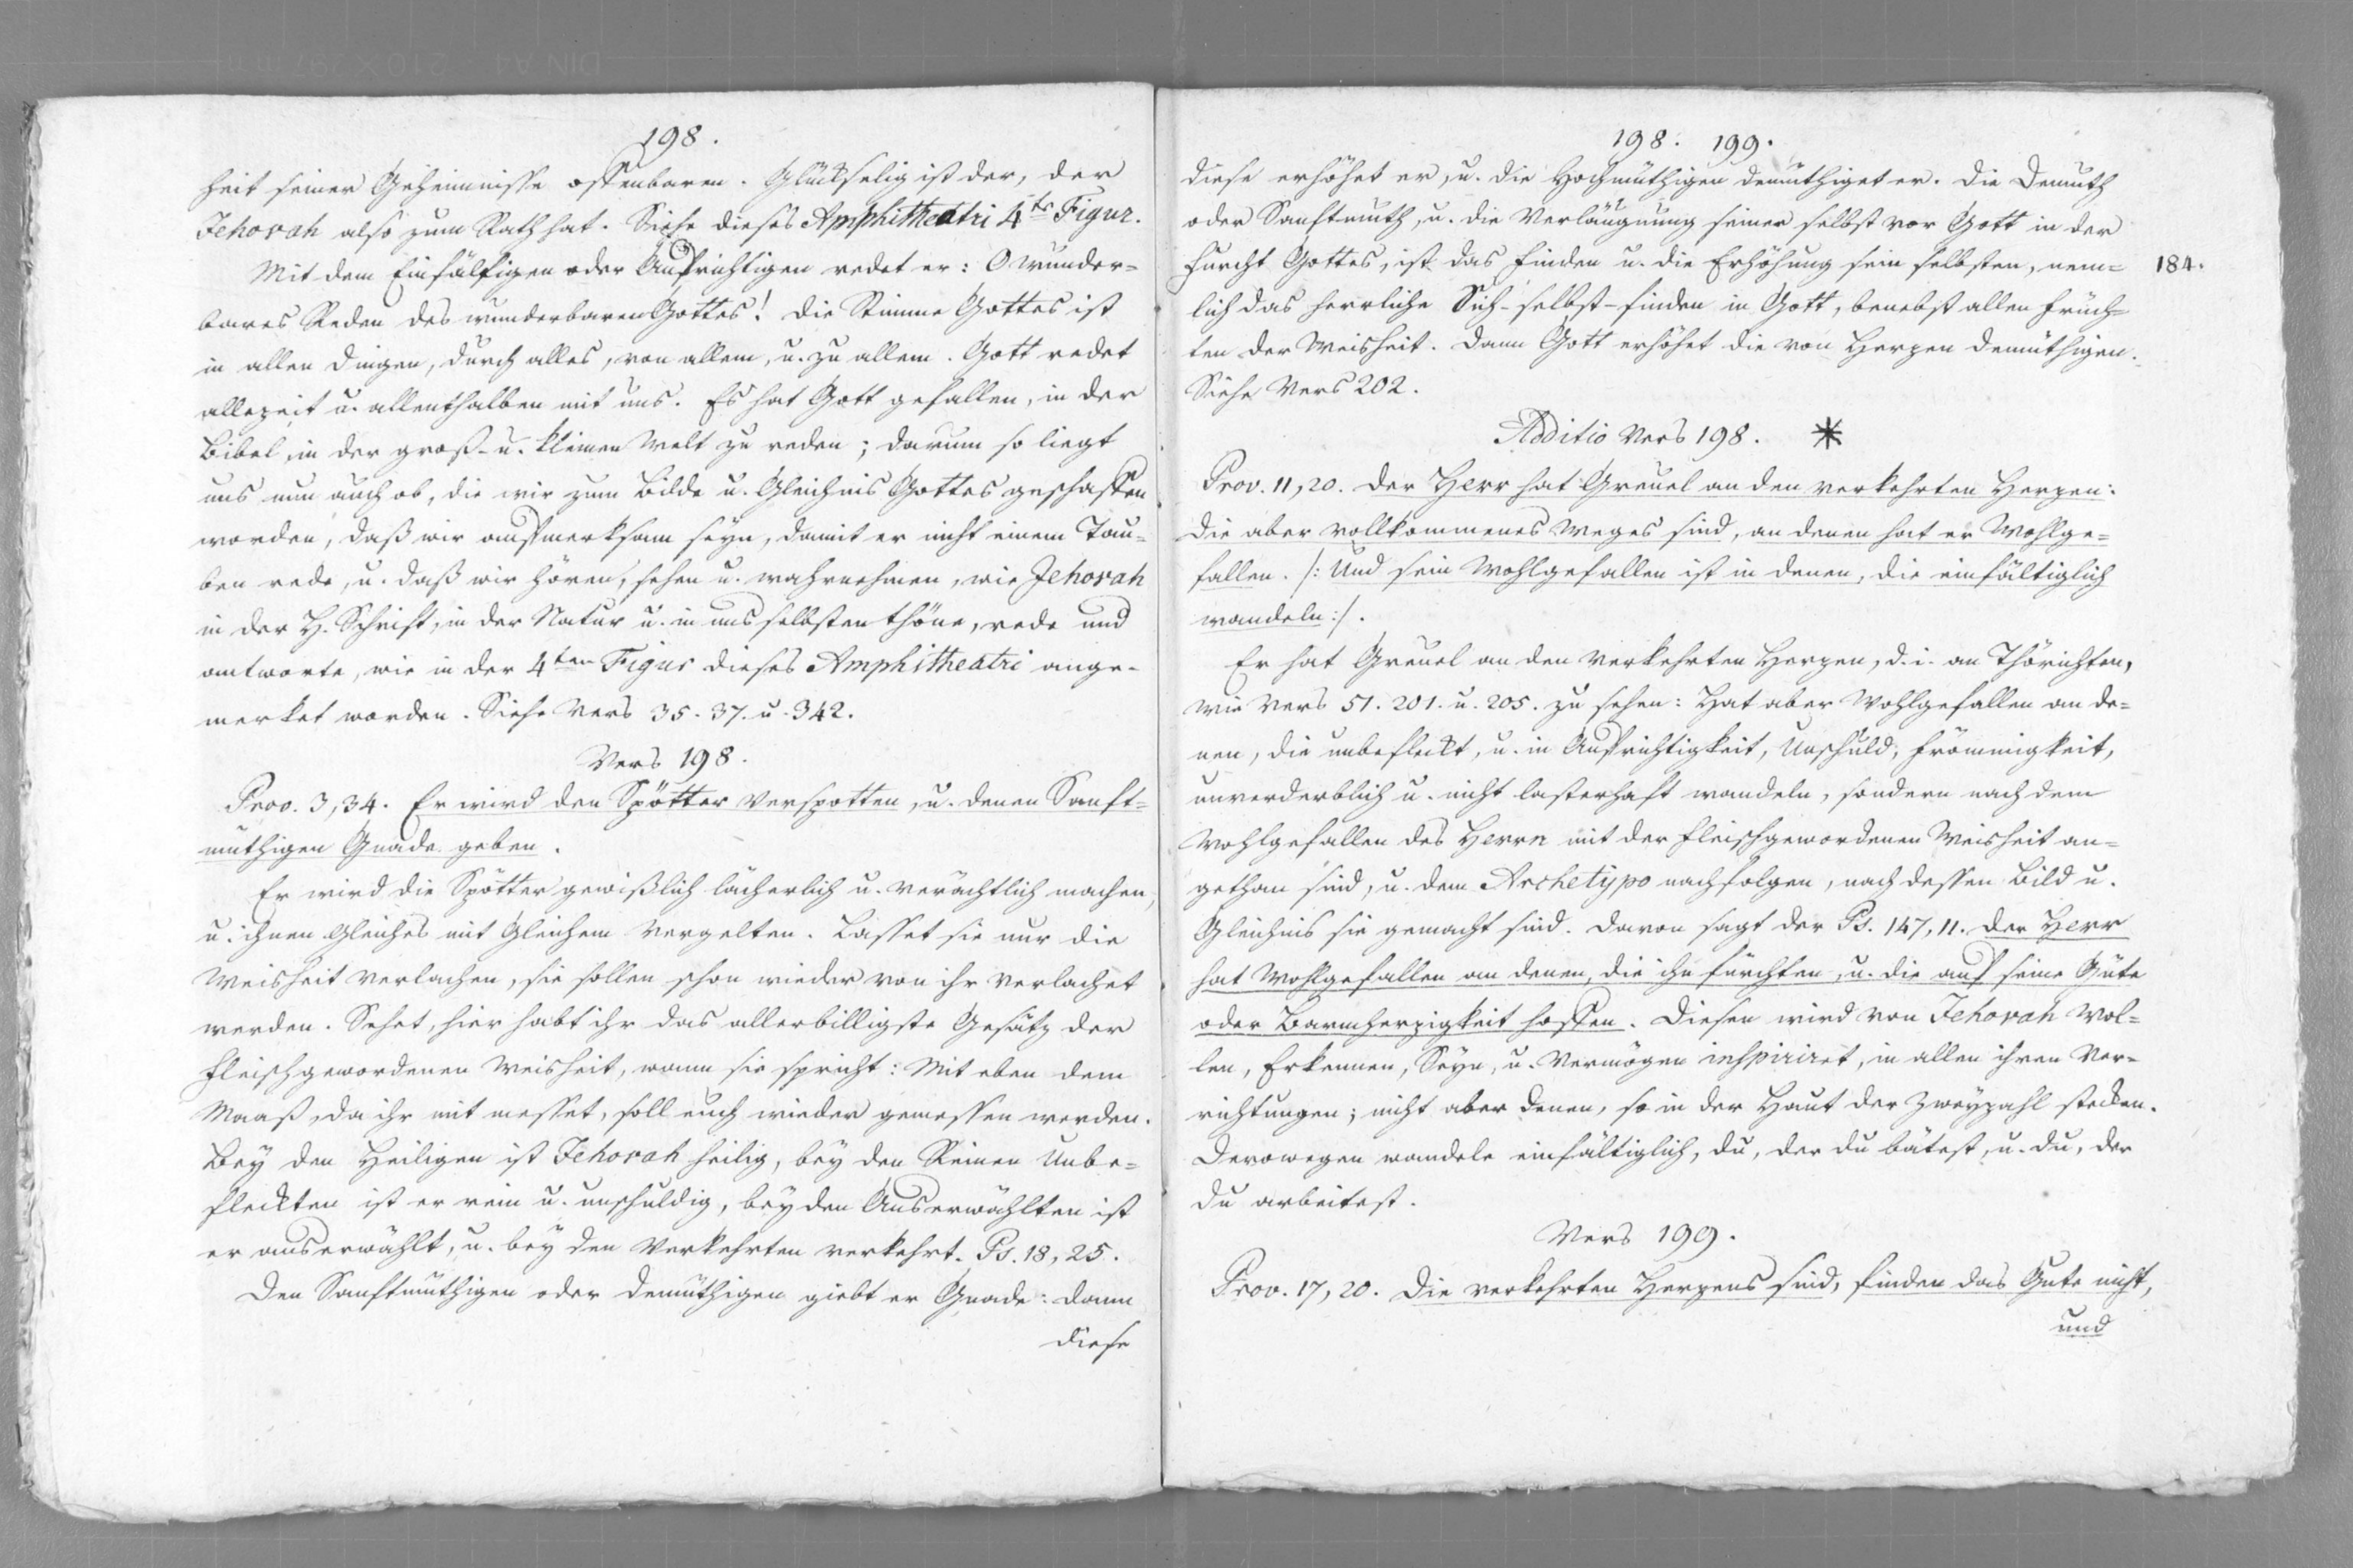 198.
heit seiner Geheimnisse offenbaren. Glückselig ist der, der
Jehovah also zum Rath hat. Siehe dieses Amphitheatri 4te Figur.
Mit dem Einfältigen oder Aufrichtigen redet er: O wunder=
bares Reden des wunderbaren Gottes! die Stimme Gottes ist
in allen Dingen, durch alles, von allem, u. zu allem. Gott redet
allezeit u. allenthalben mit uns. Es hat Gott gefallen, in der
Bibel, in der groß- u. kleinen Welt zu reden; darum so liegt
uns nun auch ob, die wir zum Bilde u. Gleichnis Gottes geschaffen
worden, daß wir aufmerksam seyn, damit er nicht einem Tau=
ben rede, u. daß wir hören, sehen u. wahrnehmen, wie Jehovah
in der H. Schrift, in der Natur u. in uns selbsten thöne, rede und
antworte, wie in der 4ten Figur dieses Amphitheatri ange-
merket worden. Siehe Vers 35. 37. u. 342.
Vers 198.
Prov. 3,34. Er wird den Spötter verspotten, u. denen Sanft=
müthigen Gnade geben.
Er wird die Spötter gewißlich lächerlich u. verächtlich machen,
u. ihnen Gleiches mit Gleichem vergelten. Lasset sie nur die
Weisheit verlachen, sie sollen schon wieder von ihr verlachet
werden. Sehet, hier habt ihr das allerbilligste Gesätz der
fleischgewordenen Weisheit, wann sie spricht: Mit eben dem
Maaß, da ihr mit messet, soll euch wieder gemessen werden.
Bey den Heiligen ist Jehovah heilig, bey den Reinen Unbe=
fleckten ist er rein u. unschuldig, bey den Auserwählten ist
er auserwählt, u. bey den Verkehrten verkehrt. Ps. 18, 25.
Den Sanftmüthigen oder Demüthigen giebt er Gnade: dann
diese
198. 199.
diese erhöhet er, u. die Hochmüthigen demüthiget er. Die Demuth
oder Sanftmuth, u. die Verläugnung seiner selbst vor Gott in der
Furcht Gottes, ist das Finden u. die Erhöhung sein selbsten, nem=
184.
lich das herrliche Sich-selbst-finden in Gott, benebst allen Früch=
ten der Weisheit. Dann Gott erhöhet die von Herzen Demüthigen.
Siehe Vers 202.
Additio Vers 198. *
Prov. 11, 20. Der Herr hat Greuel an den verkehrten Herzen:
die aber vollkommenes Weges sind, an denen hat er Wohlge=
fallen. /: Und sein Wohlgefallen ist in denen, die einfältiglich
wandeln :/.
Er hat Greuel an den verkehrten Herzen, d. i. an Thörichten,
wie Vers 51. 201. u. 205. zu sehen: Hat aber Wohlgefallen an de=
nen, die unbefleckt, u. in Aufrichtigkeit, Unschuld, Frömmigkeit,
unverderblich u. nicht lasterhaft wandeln, sondern nach dem
Wohlgefallen des Herrn mit der fleischgewordenen Weisheit an=
gethan sind, u. dem Archetypo nachfolgen, nach dessen Bild u.
Gleichnis sie gemacht sind. Davon sagt der Ps. 147, 11. der Herr
hat Wohlgefallen an denen, die ihn fürchten, u. die auf seine Güte
oder Barmherzigkeit hoffen. Diesen wird von Jehovah Wol=
len, Erkennen, Seyn, u. Vermögen inspiriret, in allen ihren Ver-
richtungen; nicht aber denen, so in der Haut der Zweyzahl stecken.
Derowegen wandele einfältiglich, du, der du bätest, u. du, der
du arbeitest.
Vers 199.
Prov. 17, 20. Die verkehrten Herzens sind, finden das Gute nicht,
und